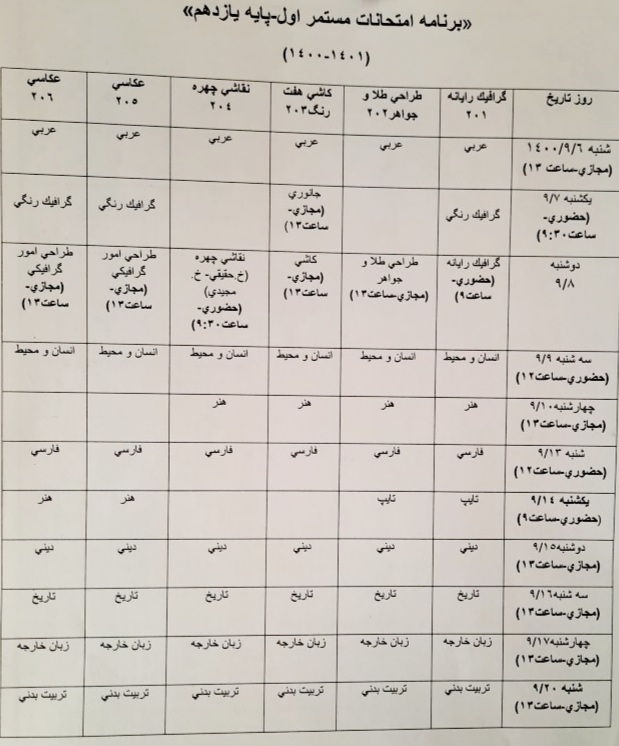 «برنامه امتحانات مستمر اول-پایه یازدهم»
(۱٤۰۰-۱٤۰۱)
روز تاریخ گرافیك رایانه ۲۰۱ طراحي طلا و جواهر۲۰۲ كاشي هفت رنگ۲۰۳ نقاشي چهره ۲۰٤ عكاسي ۲۰۵ عكاسي ۲۰۶
شنبه ۱٤۰۰/۹/۶ (مجازي-ساعت ۱۳) عربي عربي عربي عربي عربي عربي
یكشنبه ۹/۷ (حضوري-ساعت۹:۳۰) گرافیك رنگي جانوري (مجازي-ساعت۱۳) گرافیك رنگي گرافیك رنگي
دوشنبه ۹/۸ گرافیك رایانه (حضوري-ساعت۹) طراحي طلا و جواهر (مجازي-ساعت۱۳) كاشي (مجازي-ساعت۱۳) نقاشي چهره (خ.حقیقي- خ. مجیدي) (حضوري-ساعت۹:۳۰) طراحي امور گرافیكي (مجازي-ساعت۱۳) طراحي امور گرافیكي (مجازي-ساعت۱۳)
سه شنبه ۹/۹ (حضوري-ساعت۱۲) انسان و محیط انسان و محیط انسان و محیط انسان و محیط انسان و محیط انسان و محیط
چهارشنبه۹/۱۰ (مجازي-ساعت۱۳) هنر هنر هنر هنر
شنبه ۹/۱۳ (حضوري-ساعت۱۲) فارسي فارسي فارسي فارسي فارسي فارسي
یكشنبه ۹/۱٤ (حضوري-ساعت۹) تایپ تایپ هنر هنر
دوشنبه۹/۱۵ (مجازي-ساعت۱۳) دیني دیني دیني دیني دیني دیني
سه شنبه۹/۱۶ (مجازي-ساعت۱۳) تاریخ تاریخ تاریخ تاریخ تاریخ تاریخ
چهارشنبه۹/۱۷ (مجازي-ساعت۱۳) زبان خارجه زبان خارجه زبان خارجه زبان خارجه زبان خارجه زبان خارجه
شنبه ۹/۲۰ (مجازي-ساعت۱۳) تربیت بدني تربیت بدني تربیت بدني تربیت بدني تربیت بدني تربیت بدني